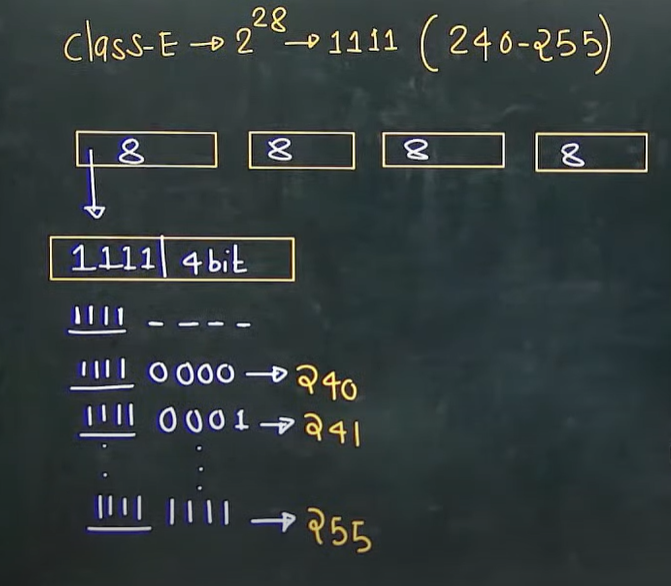 Class-E → 2^28 → 1111 (240-255)
8 8 8 8
1111 | 4 bit
1111 - - - -
1111 0000 → 240
1111 0001 → 241
1111 1111 → 255